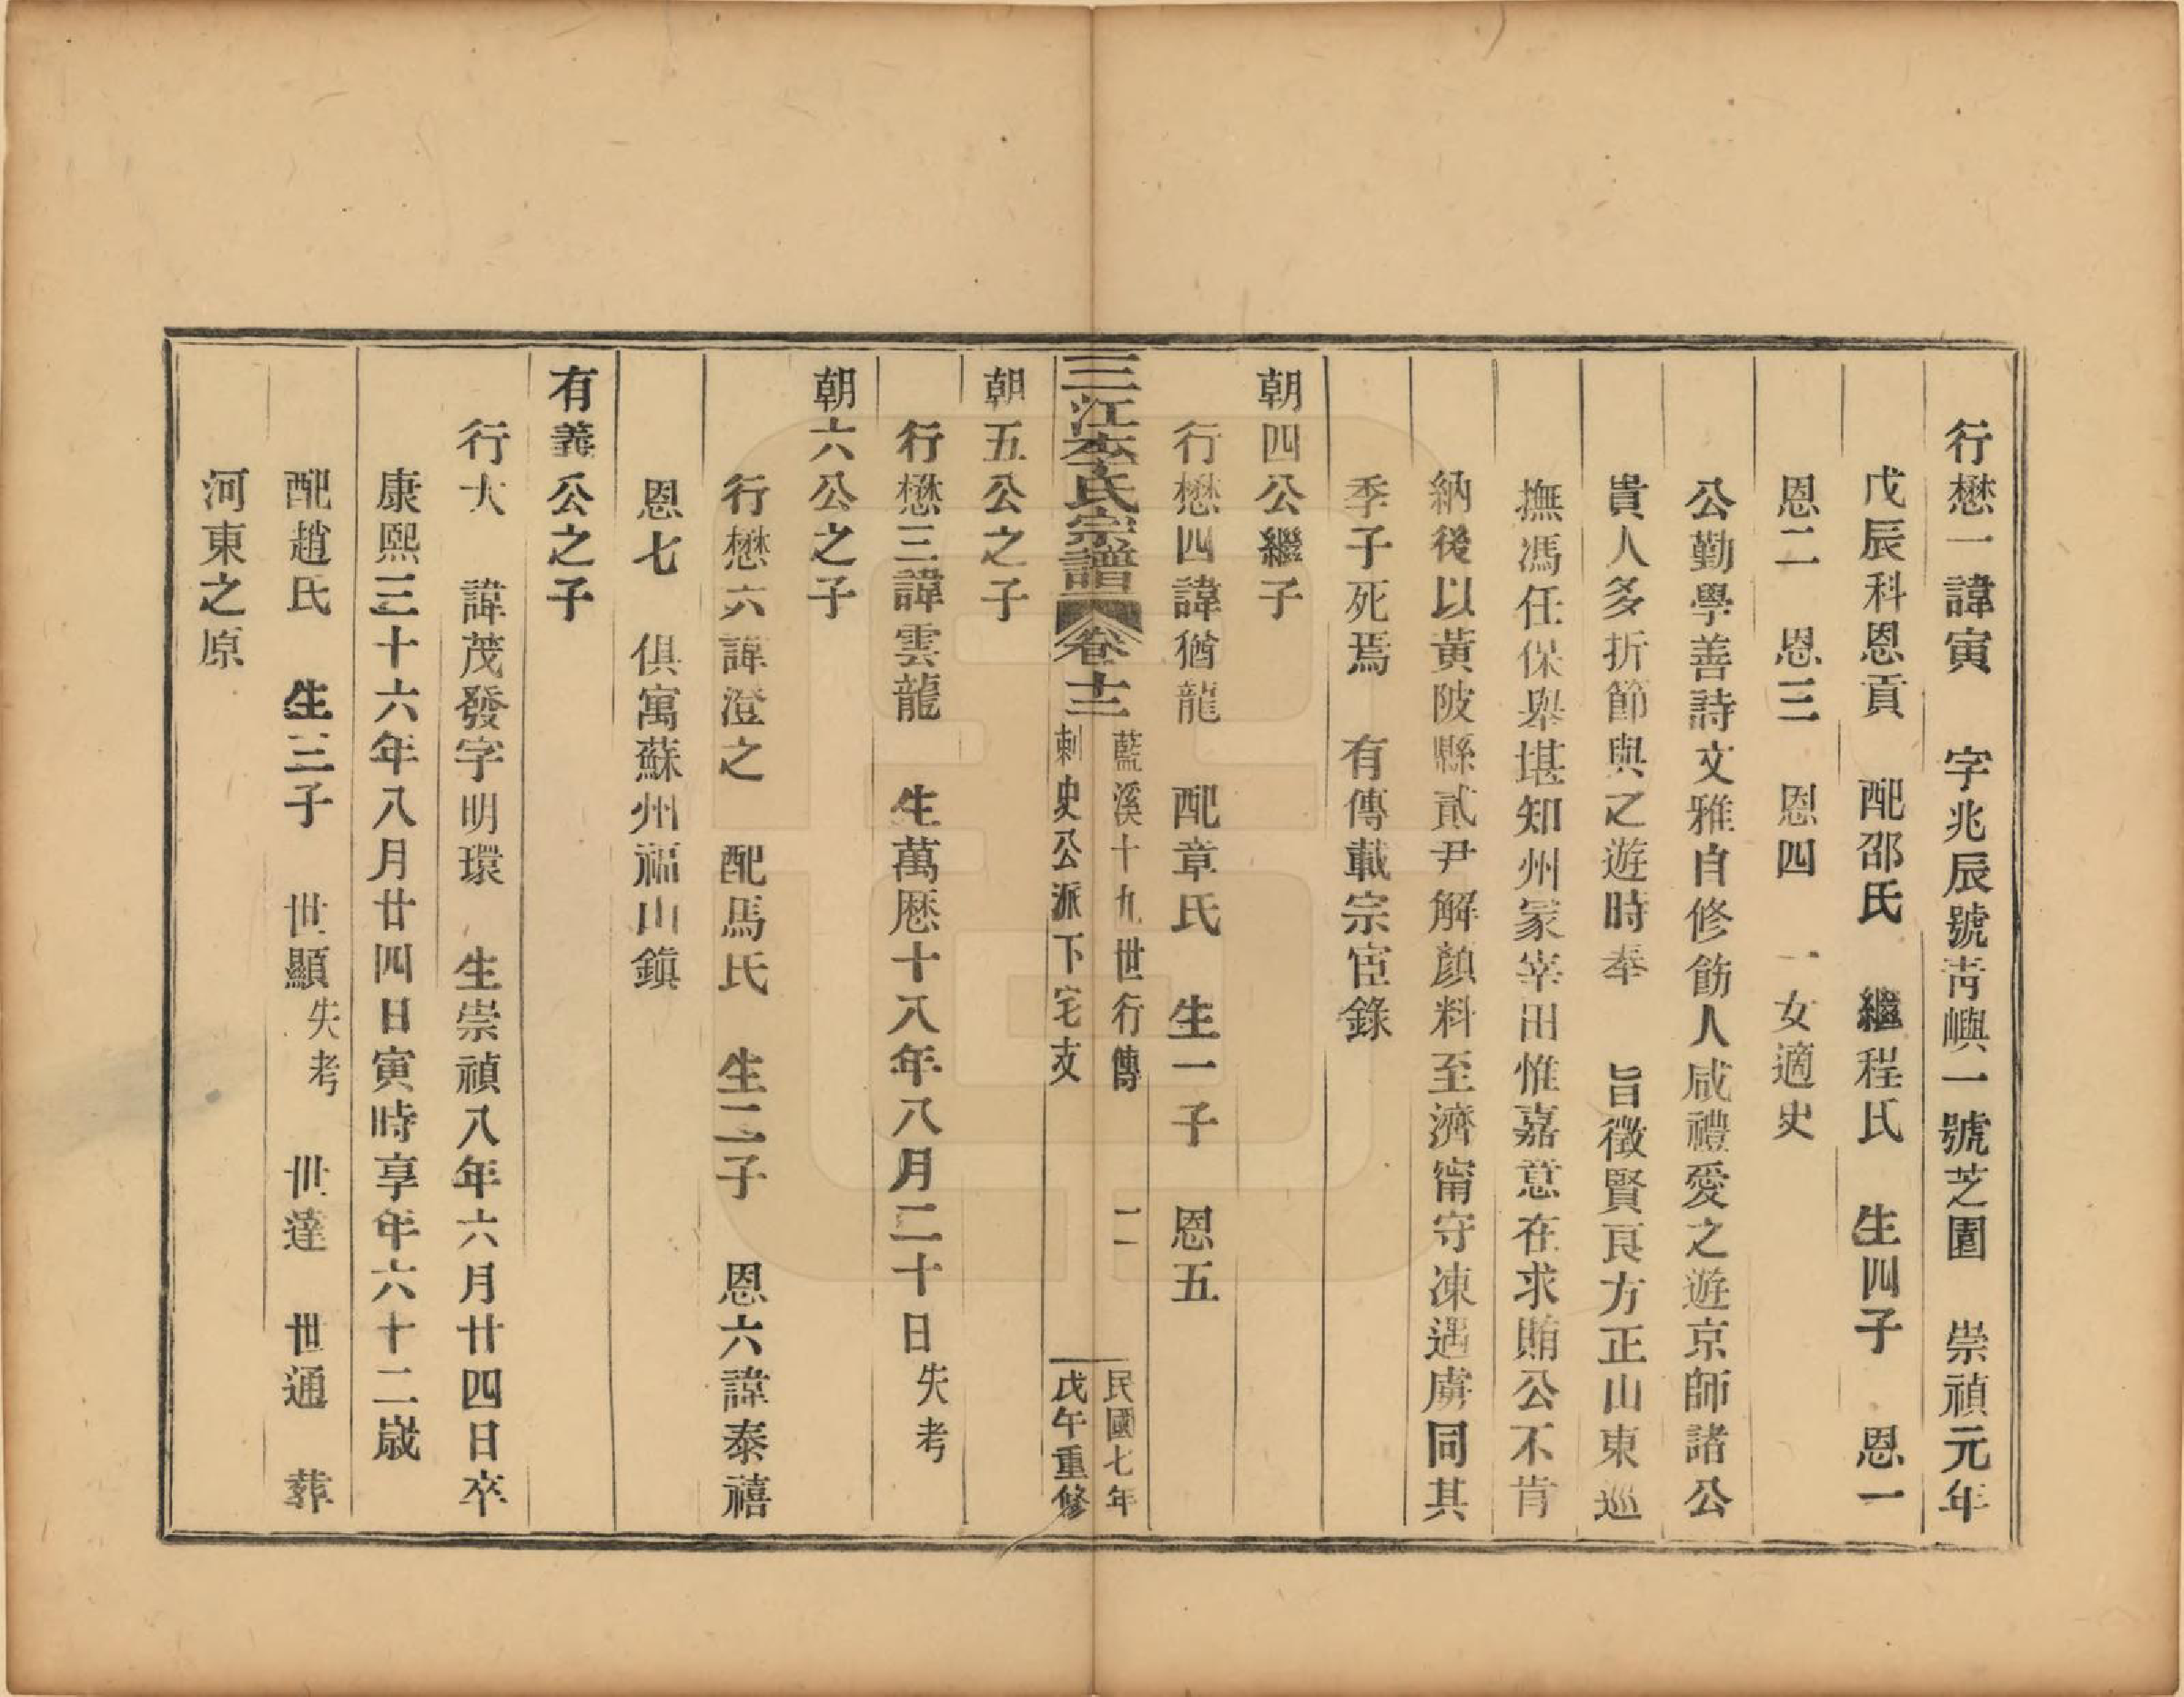 行懋一諱寅　字兆辰號靑嶼一號芝園　崇禎元年
戊辰科恩貢　配邵氏　繼程氏　生四子　恩一
恩二　恩三　恩四　一女適史
公勤學善詩文雅自修飭人咸禮愛之遊京師諸公
貴人多折節與之遊時奉　旨徵賢良方正山東巡
撫馮任保舉堪知州冡宰田惟嘉意在求賄公不肯
納後以黃陂縣貳尹解顏料至濟甯守凍遇虜同其
季子死焉　有傳載宗宦錄
朝四公繼子
行懋四諱猶龍　配章氏　生一子　恩五
三江李氏宗譜　卷十二　藍溪十九世行傳　刺史公派下宅支　二　民國七年　戊午重修
朝五公之子
行懋三諱雲龍　生萬歷十八年八月二十日失考
朝六公之子
行懋六諱澄之　配馬氏　生二子　恩六諱泰禧
恩七　俱寓蘇州福山鎭
有義公之子
行大　諱茂發字明環　生崇禎八年六月廿四日卒
康熙三十六年八月廿四日寅時享年六十二歲
配趙氏　生三子　世顯失考　世達　世通　葬
河東之原